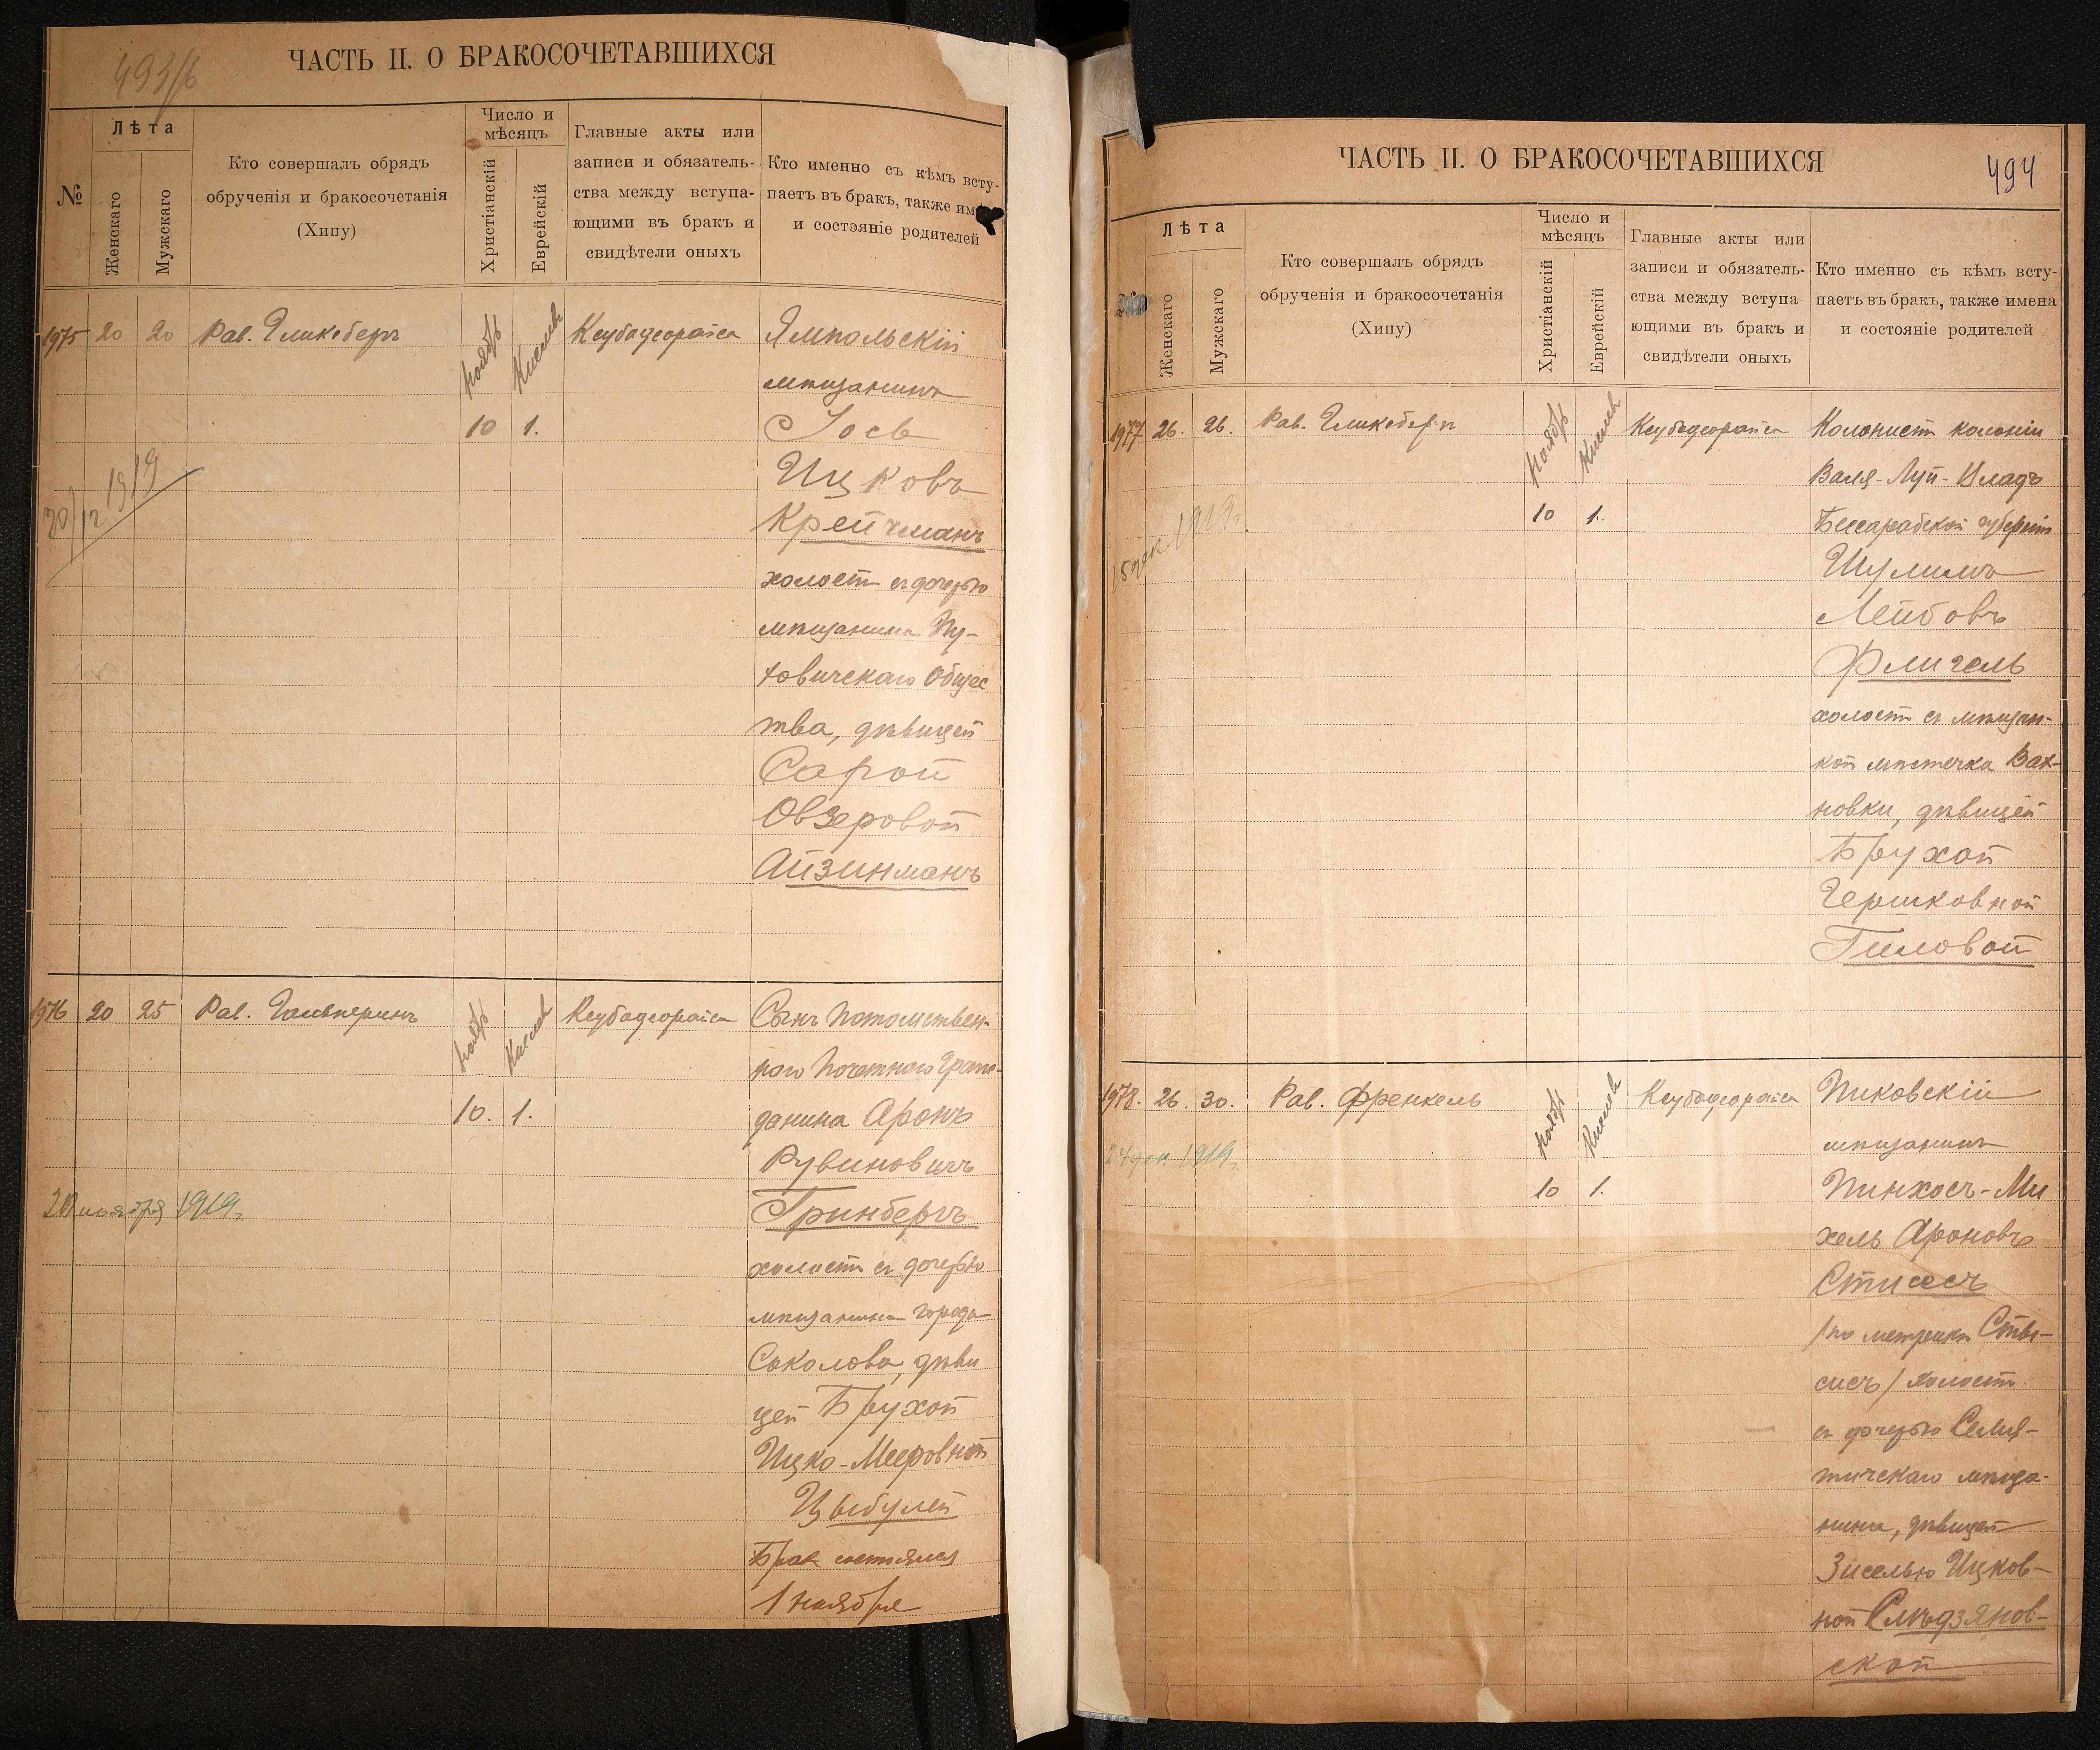 493/б
ЧАСТЬ II. О БРАКОСОЧЕТАВШИХСЯ
№
Лѣта
Женскаго
Мужскаго
Кто совершалъ обрядъ
обрученія и бракосочетанія
(Хипу)
Число и
мѣсяцъ
Христіанскій
Еврейскій
Главные акты или
записи и обязатель-
ства между вступа-
ющими въ бракъ и
свидѣтели оныхъ
Кто именно съ кѣмъ всту-
паетъ въ бракъ, также им
и состэяніе родителей
1975 20 20 Рав. Гликсберъ Ноябрь Кислевъ Ксубадеорайса Ямпольскій
мѣщанинъ
10 1. Іось
Ицковъ
Крейчманъ
30/12 1919
холостъ съ дочерью
мѣщанина Пу-
ховичскаго Общес
тва, дѣвицей
Сарой
Овзеровой
Айзинманъ
1976 20 25 Рав. Гальперинъ Ноябрь Кислевъ Ксубадеорайса Сынъ Потомствен-
наго Почетнаго Граж-
10. 1. данина Аронъ
Рувиновичъ
20 ноября 1919г. Гринбергъ
холостъ съ дочерью
мѣщанина города
Соколова, дѣви
цей Брухой
Ицко-Мееровной
Цыбулей
Бракъ состоялся
1 Ноября
ЧАСТЬ II. О БРАКОСОЧЕТАВШИХСЯ
494
Лѣта
Женскаго
Мужскаго
Кто совершалъ обрядъ
обрученія и бракосочетанія
(Хипу)
Число и
мѣсяцъ
Христіанскій
Еврейскій
Главные акты или
записи и обязатель-
ства между вступа
ющими въ бракъ и
свидѣтели оныхъ
Кто именно съ кѣмъ всту-
паетъ въ бракъ, также имена
и состояніе родителей
1977 26. 26. Рав. Гликсберъ Ноябрь Кислевъ Ксубадеорайса Колонистъ колоніи
Валя-Луй-Владъ
10 1. Бессарабской губерніи
15 дек. 1919г.
Шулимъ
Лейбовъ
Флигель
холостъ съ мѣщан-
кой мѣстечка Вах-
новки, дѣвицей
Брухой
Гершковной
Гиловой
1978. 26. 30. Рав. Френкель Ноябрь Кислевъ Ксубадеорайса Пиковскій
24 дек. 1919г. мѣщанинъ
10 1. Пинхосъ-Ми
хель Ароновъ
Стисесъ
/по метрикѣ Сты-
сисъ/ холостъ
съ дочерью Семя-
тичскаго мѣща-
нина, дѣвицей
Зиселью Ицков-
ной Смѣдзянов-
ской